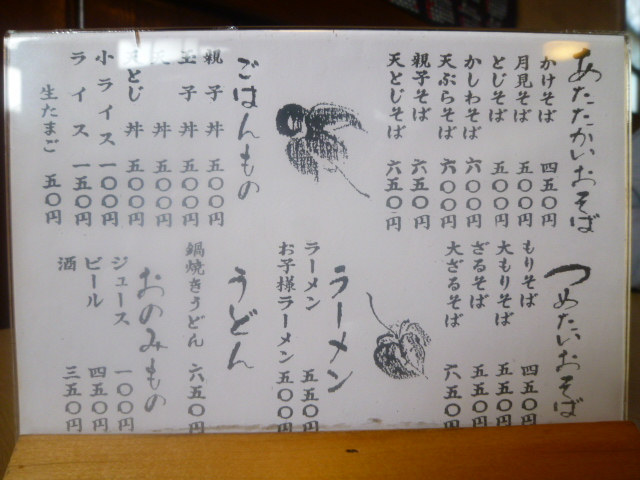 あたたかいおそば
かけそば 四五〇円
月見そば 五〇〇円
とじそば 五〇〇円
かしわそば 六〇〇円
天ぷらそば 六〇〇円
親子そば 六五〇円
天とじそば 六五〇円
ごはんもの
親子丼 五〇〇円
玉子丼 五〇〇円
天丼 五〇〇円
天とじ丼 五〇〇円
小ライス 一〇〇円
ライス 一五〇円
生たまご 五〇円
つめたいおそば
もりそば 四五〇円
大もりそば 五五〇円
ざるそば 五五〇円
大ざるそば 六五〇円
ラーメン
ラーメン 五五〇円
お子様ラーメン 五〇〇円
うどん
鍋焼きうどん 六五〇円
おのみもの
ジュース 一〇〇円
ビール 四五〇円
酒 三五〇円